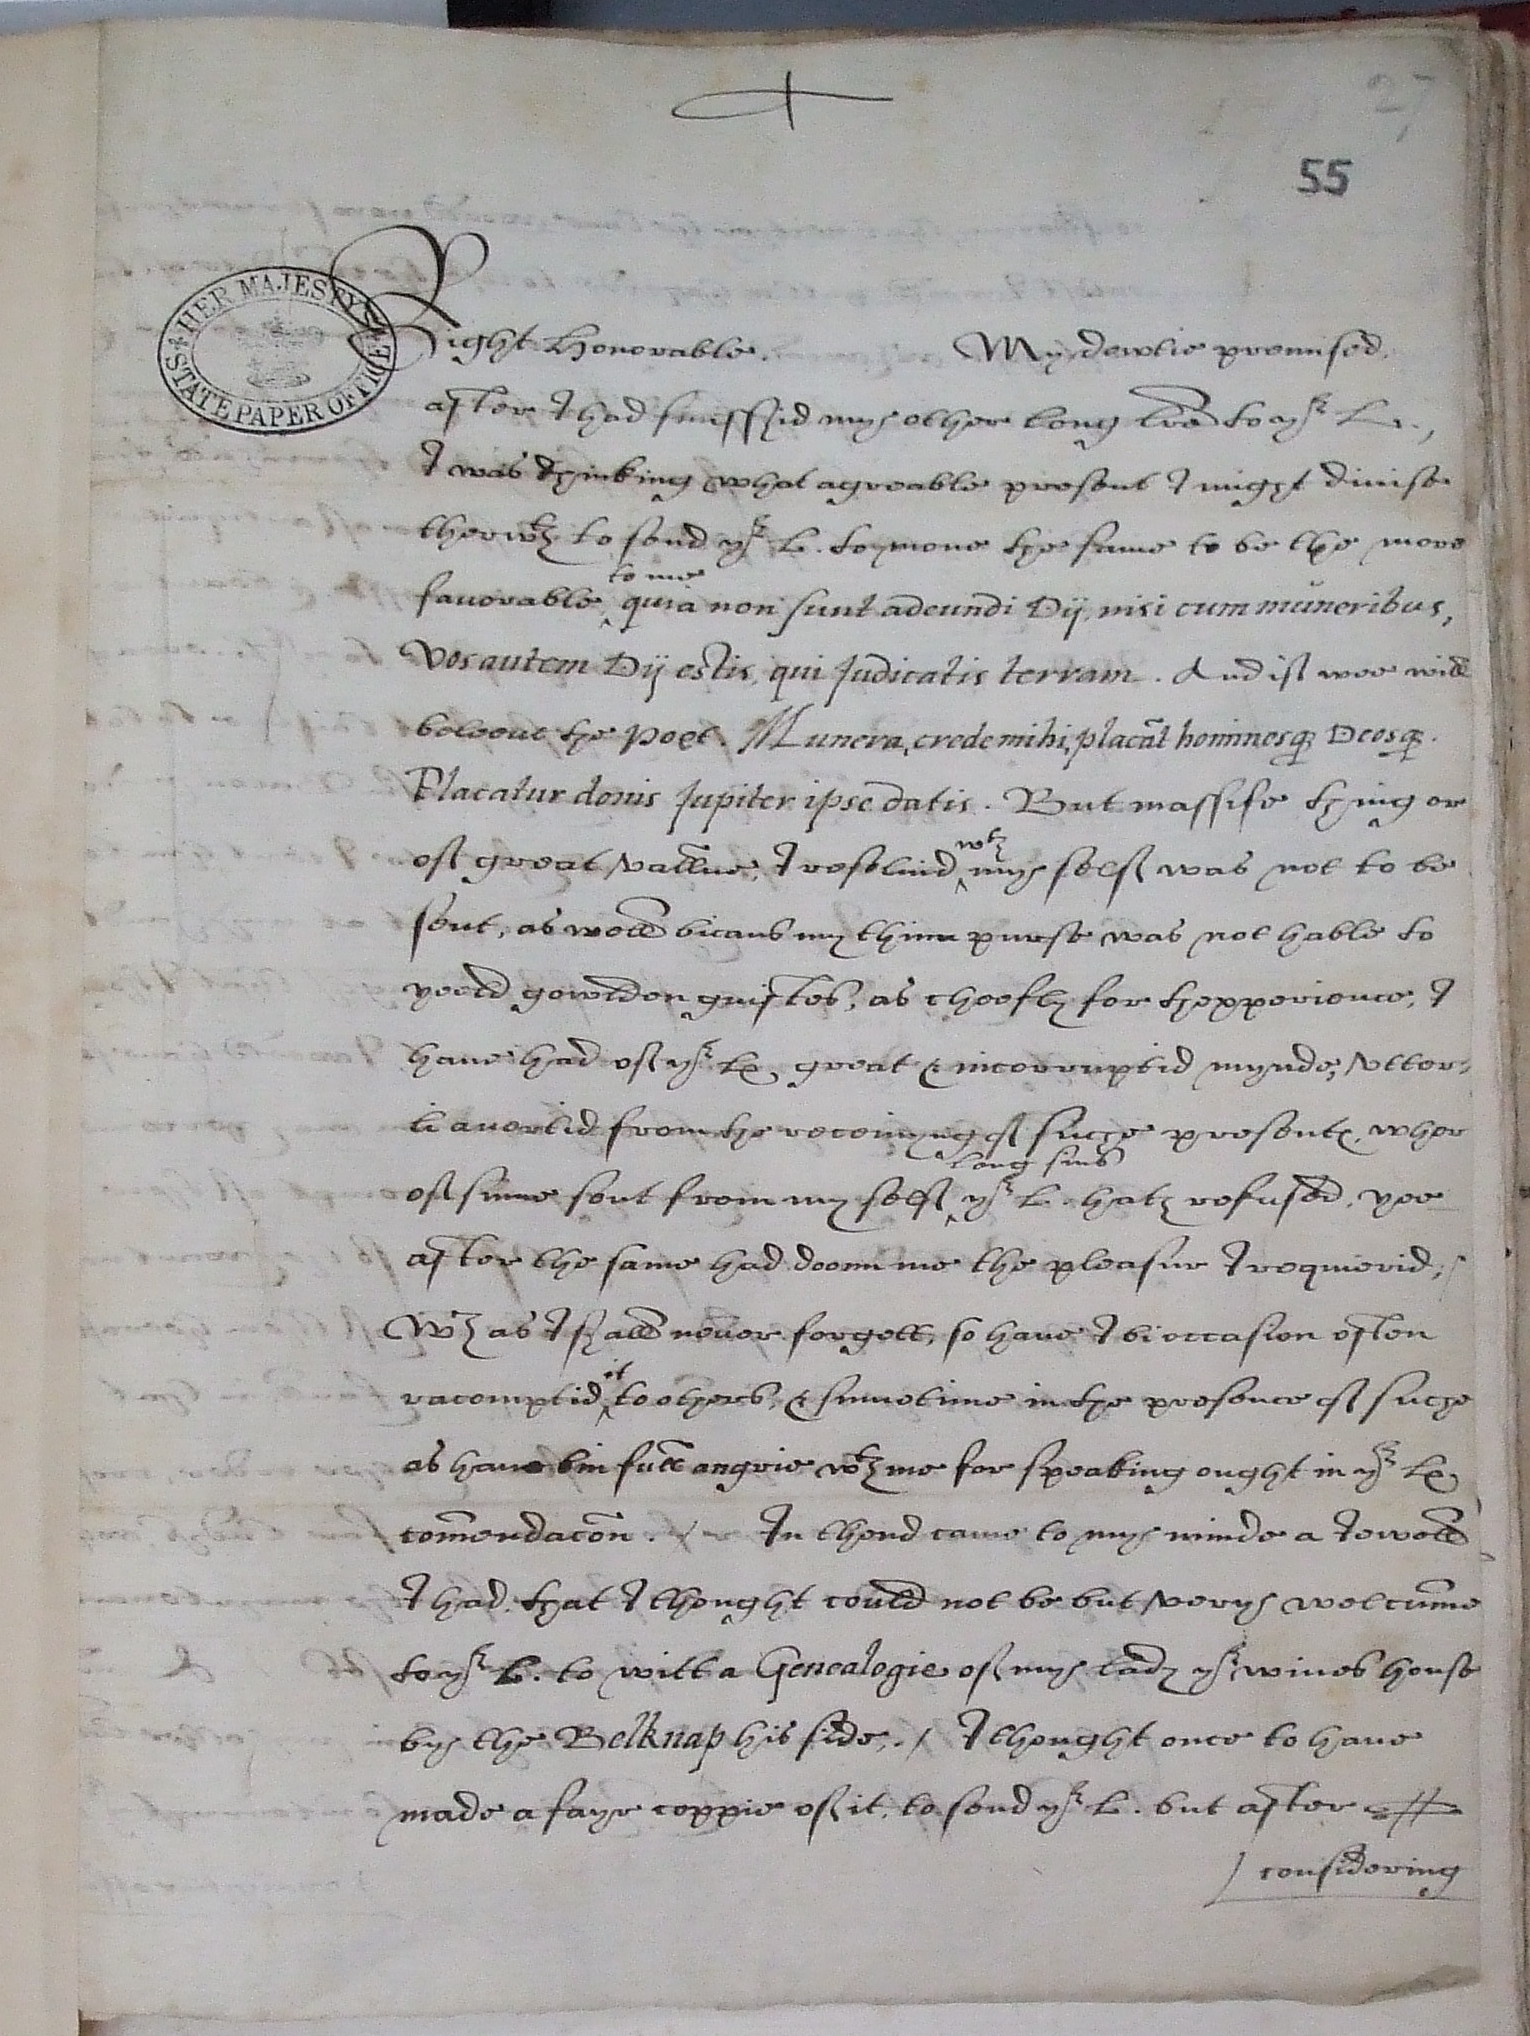 27
55
HER MAJESTY'S STATE PAPER OFFICE
Right Honorable. My dewtie promised.
after I had finisshid my other long lre to yr L.,
I was thinking what agreable present I might divise
therwth to send yr L. to move the same to be the more
favorable to me quia non sunt adeundi Dij, nisi cum muneribus,
Vos autem Dij estis, qui judicatis terram. And if wee will
beleeve the Poet. Munera, crede mihi, placāt hominesq Deosq.
Placatur donis Jupiter ipse datis. But massife thing or
of great vallue, I resolvid wth my self was not to be
sent, as well bicaus my thinn purse was not hable to
yeeld gowlden guiftes, as cheefly for thexperience, I
have had of yr Lp great & incorruptid mynde, utter-
li avertid from the receivyng of suche presents, wher
of sume sent from my self long sins yr L. hath refused, yee
after the same had doonn me the pleasur I requierid;
Wch as I shall never forgett, so have I bi occasion often
racomptid it to others, & sumetime in the presence of suche
as have bin full angrie wth me for speaking ought in yr Lp
comendacon. / In thend came to my minde a Jewell
I had, that I thought could not be but very welcume
to yr L. to witt a Genealogie of my lady yr wives house
by the Belknap his side. / I thought once to have
made a fayr coppie of it, to send yr L. but after
considering